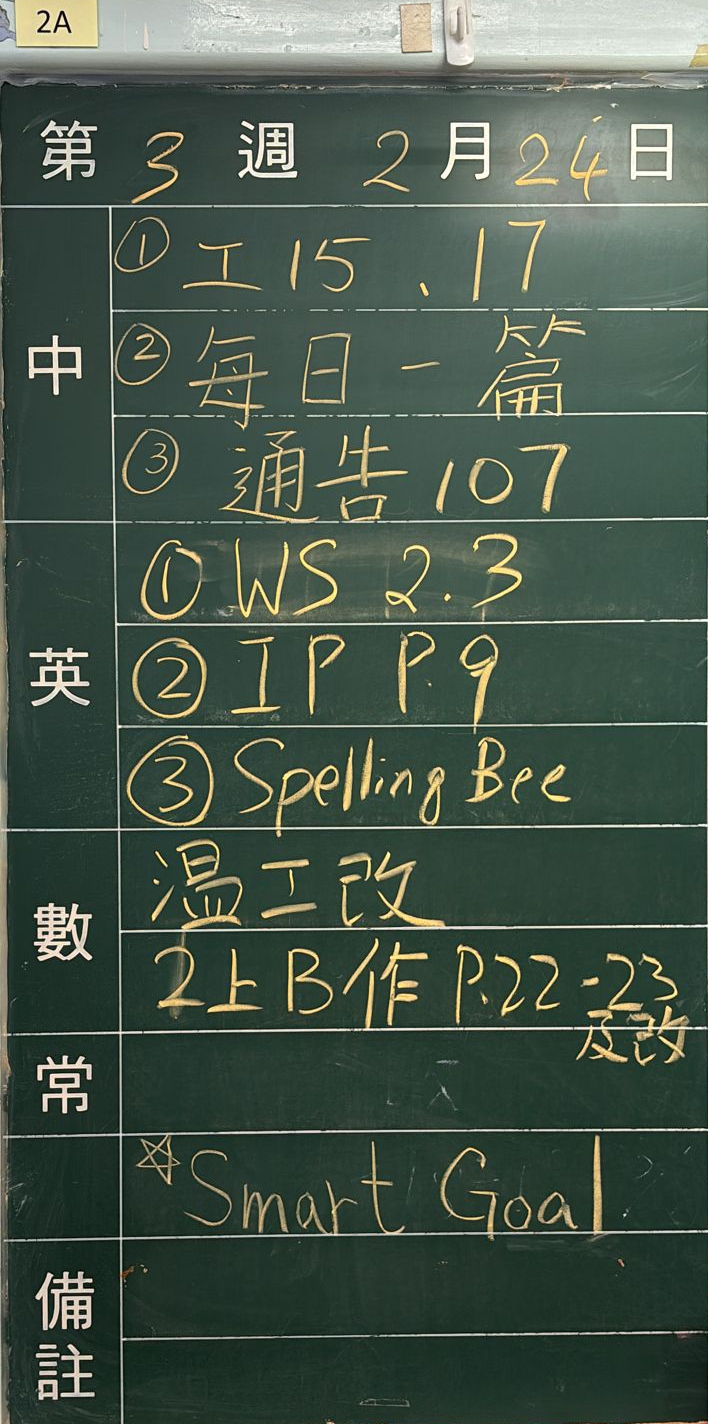 2A
第 3 週 2 月 24 日
中
① 工 15、17
② 每日一篇
③ 通告 107
英
① WS 2.3
② IP P.9
③ Spelling Bee
數
温工改
2上B作 P.22-23
及改
常
☆Smart Goal
備註